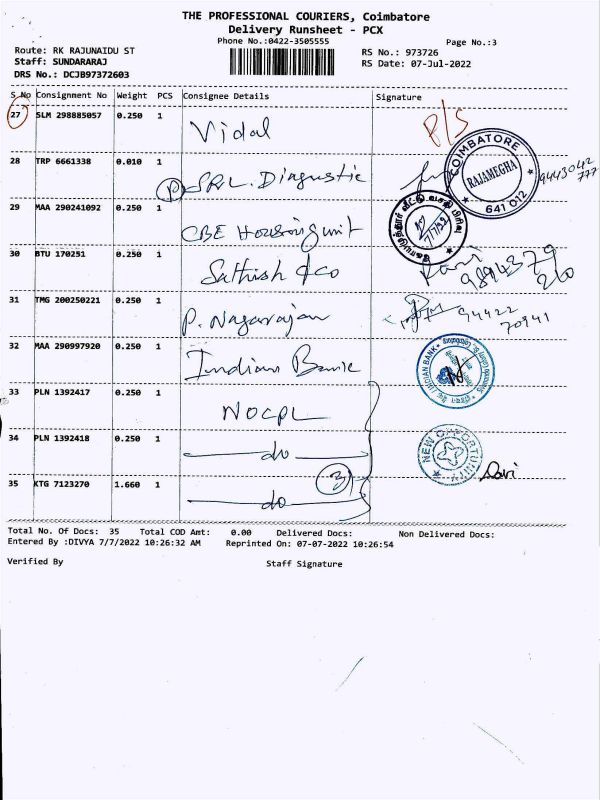 THE PROFESSIONAL COURIERS, Coimbatore
Delivery Runsheet - PCX
Phone No.:0422-3505555 Page No.:3
Route: RK RAJUNAIDU ST RS No.: 973726
Staff: SUNDARARAJ RS Date: 07-Jul-2022
DRS No.: DCJB97372603
S No Consignment No Weight PCS Consignee Details Signature
27 SLM 298885057 0.250 1 Vidal P/S
28 TRP 6661338 0.010 1 SRL. Diagnustic COIMBATORE RAJAMEGHA 641 012 9443042 777
29 MAA 290241092 0.250 1 CBE Housing unit 7/7/22
30 BTU 170251 0.250 1 Sathish & co Ravi 9894379 260
31 TMG 200250221 0.250 1 P. Nagarajan 94422 70941
32 MAA 290997920 0.250 1 Indian Bank INDIAN BANK
33 PLN 1392417 0.250 1 NOCPL
34 PLN 1392418 0.250 1 do NEW OPPORTUNITY
35 KTG 7123270 1.660 1 do 3
Total No. Of Docs: 35 Total COD Amt: 0.00 Delivered Docs: Non Delivered Docs:
Entered By :DIVYA 7/7/2022 10:26:32 AM Reprinted On: 07-07-2022 10:26:54
Verified By Staff Signature